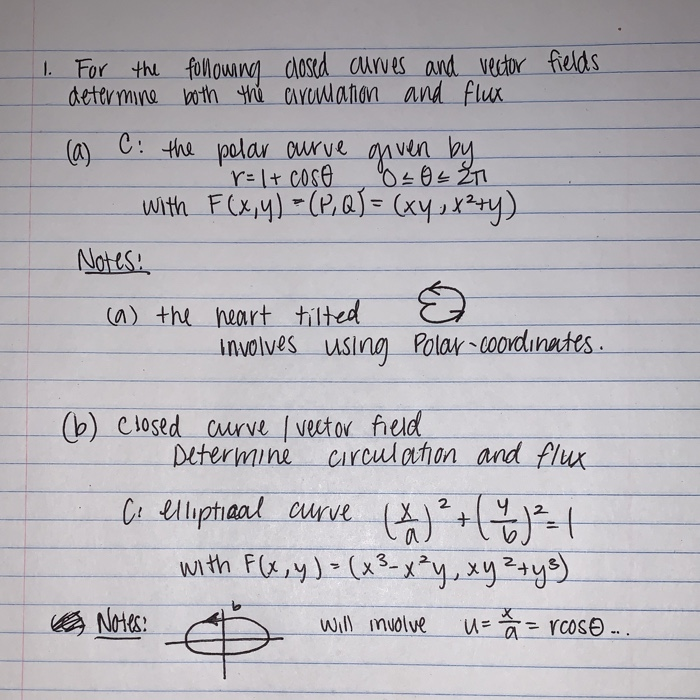 1. For the following closed curves and vector fields
determine both the circulation and flux
(a) C: the polar curve given by
r = 1 + cosθ 0 ≤ θ ≤ 2π
with F(x,y) = (P,Q) = (xy, x²+y)
Notes:
(a) the heart tilted
involves using Polar-coordinates.
(b) closed curve / vector field
Determine circulation and flux
C: elliptical curve (x/a)² + (y/b)² = 1
with F(x,y) = (x³-x²y, xy²+y³)
Notes: b will involve u = x/a = rcosθ ...